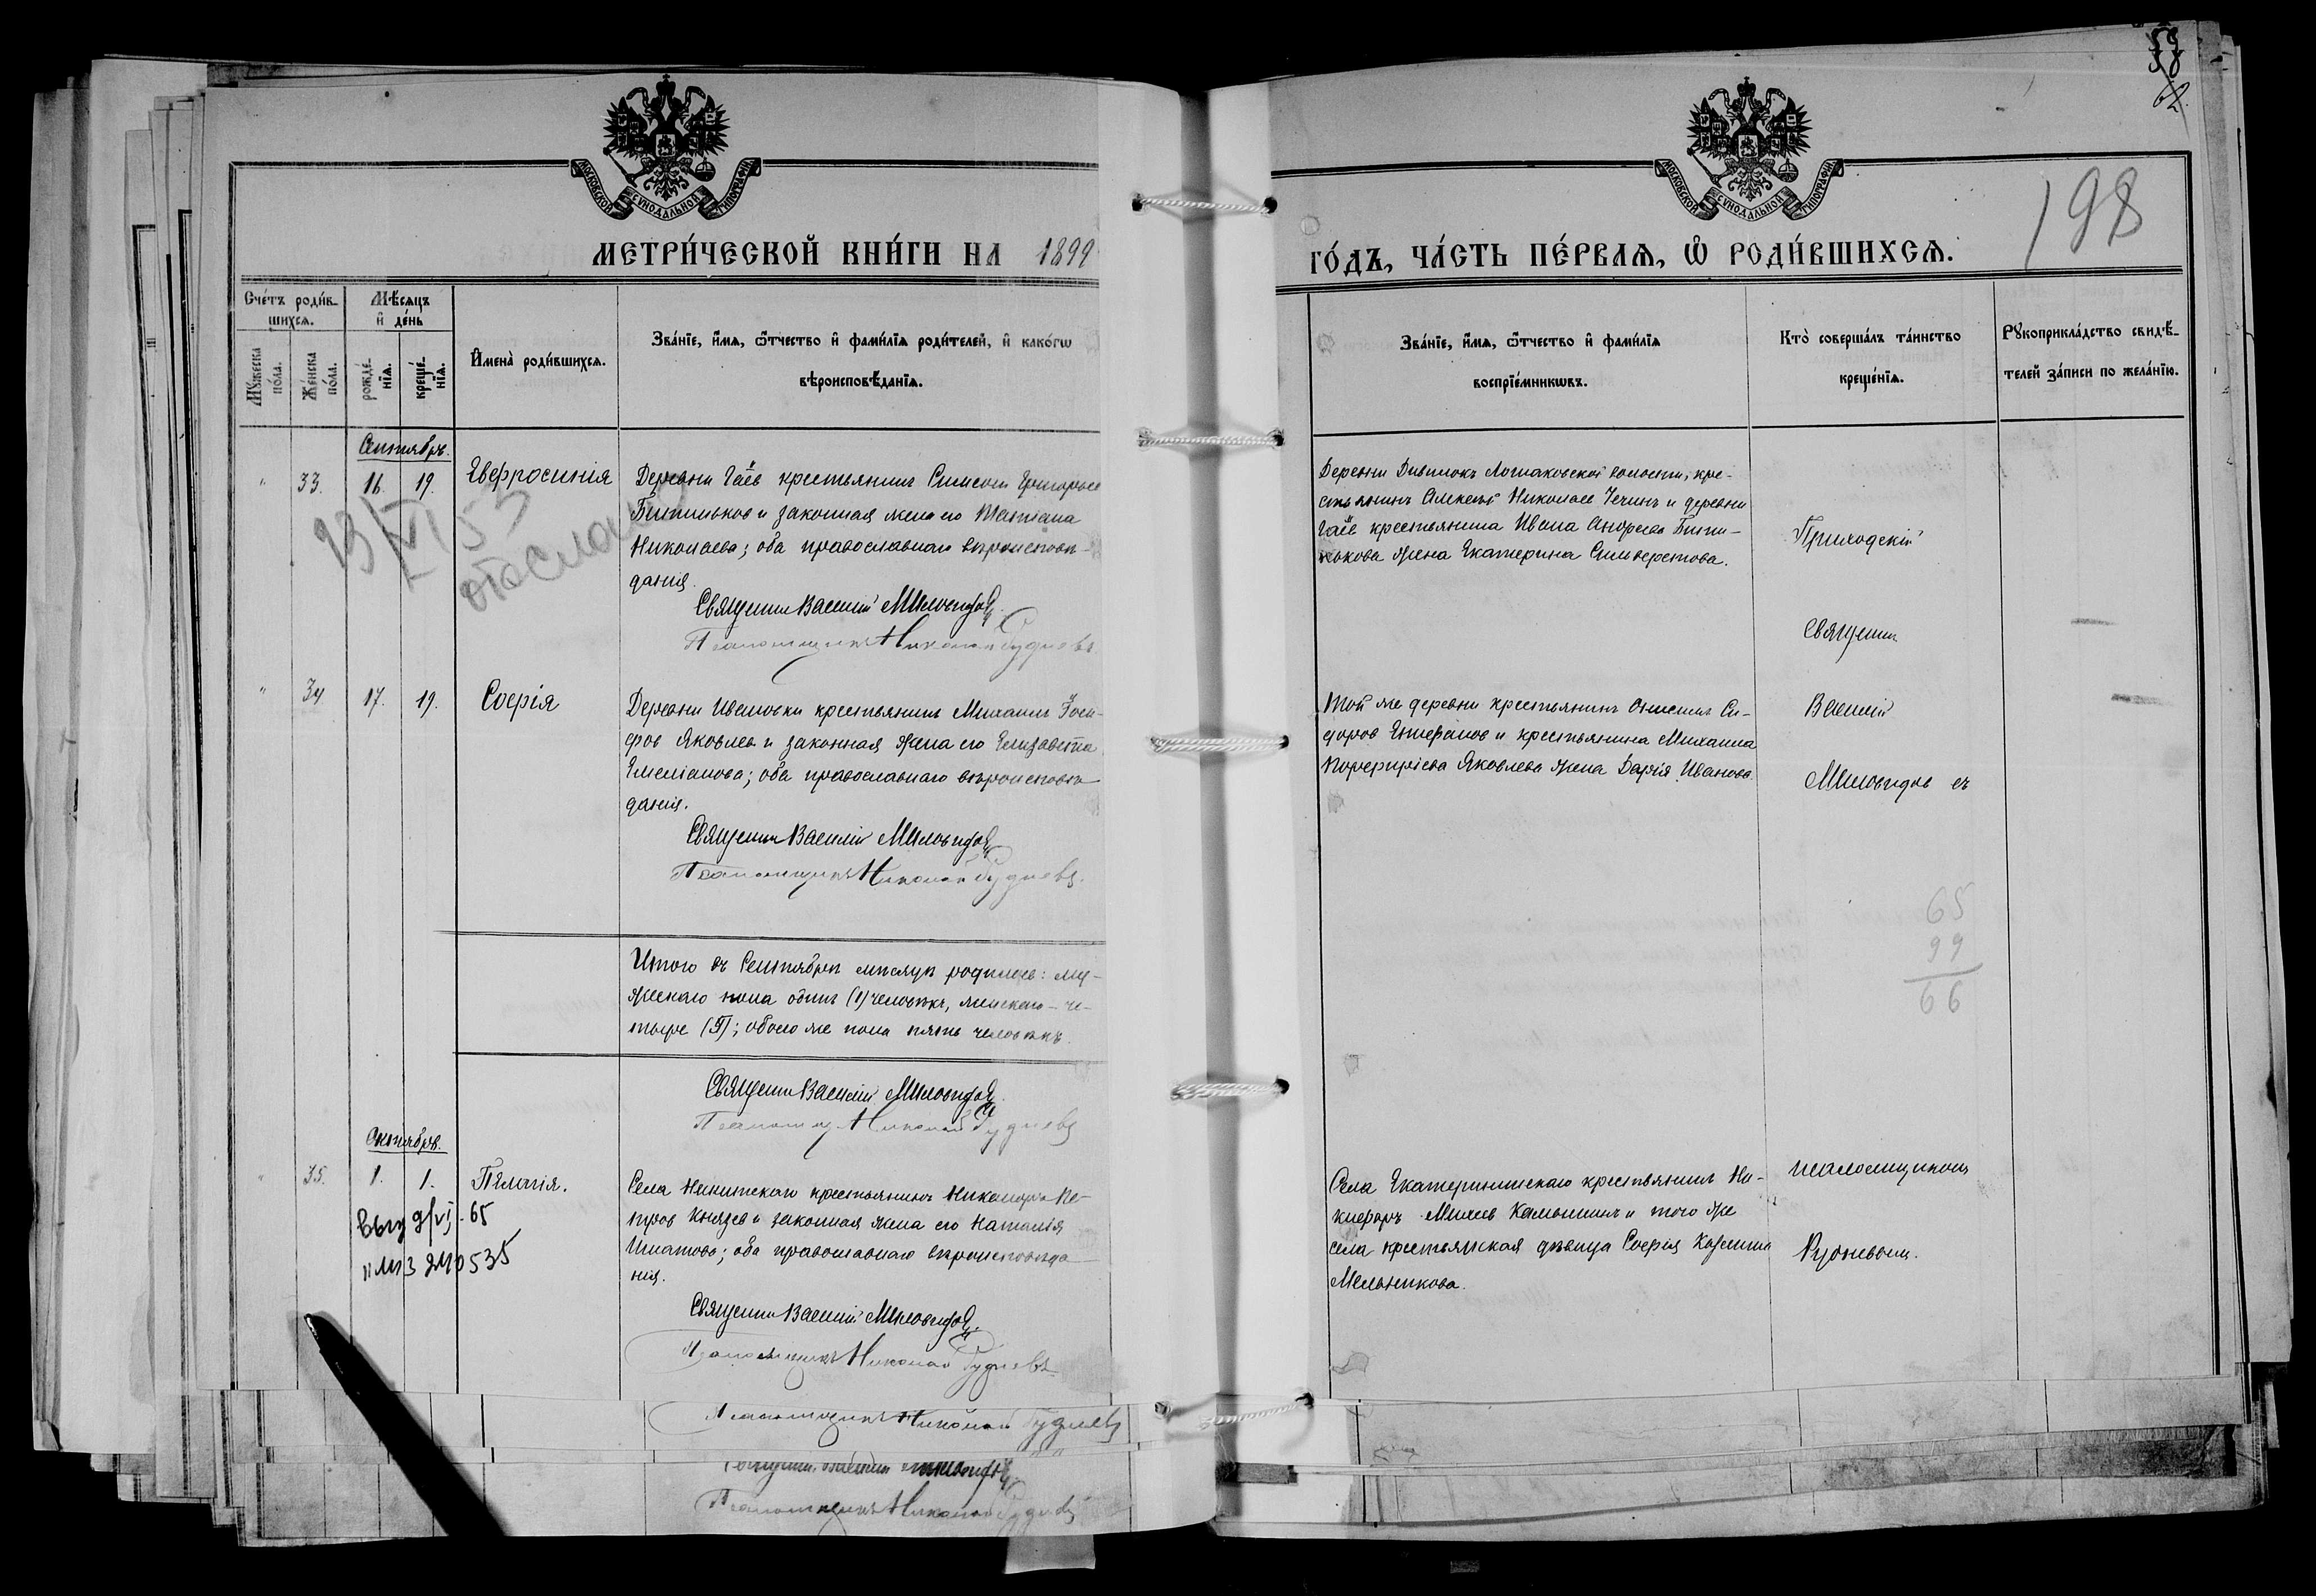 59
58
62
198
МОСКОВСКОЙ СѴНОДАЛЬНОЙ ТИПОГРАФІИ
МОСКОВСКОЙ СѴНОДАЛЬНОЙ ТИПОГРАФІИ
МЕТРИ́ЧЕСКОЙ КНИ́ГИ НА 1899
ГО́ДЪ, ЧА́СТЬ ПЕ́РВАѦ, Ѽ РОДИ́ВШИХСѦ.
Сче́тъ роди́в-
шихсѧ.
Мꙋ́жеска по́ла.
Же́нска по́ла.
Мѣ́сѧцъ
и҆ де́нь
рожде́-
нїѧ.
креще́-
нїѧ.
И҆мена̀ роди́вшихсѧ.
Зва́нїе, и҆́мѧ, ѻ҆́тчество и҆ фами́лїѧ роди́телей, и҆ како́гѡ
вѣроисповѣ́данїѧ.
Зва́нїе, и҆́мѧ, ѻ҆́тчество и҆ фами́лїѧ
воспрїе́мникѡвъ.
Кто̀ соверша́лъ та́инство
креще́нїѧ.
Рꙋкоприкла́дство свидѣ́-
телей за́писи по жела́нїю.
Сентябрь.
" 33. 16. 19. Евфросинія
Деревни Гаёв крестьянинъ Симеон Григорьев
и законная жена его Татіана
Николаева; оба православнаго вѣроисповѣ-
данія.
Священник Василій Миловидов
Псаломщикъ Николай Рудневъ
отослано
Деревни Лошаковской волости, кре-
стьянинъ Алексѣй Николаев и деревни
Гаёв крестьянина Ивана Андреева
жена Екатерина Сильверстова.
Приходскій
Священник
" 34 17. 19. Софія
Деревни Ивановки крестьянинъ Михаилъ Іоси-
фов Яковлев и законная жена его Елизавета
Емеліанова; оба православнаго вѣроисповѣ-
данія.
Священник Василій Миловидов
Псаломщикъ Николай Рудневъ.
Той же деревни крестьянинъ Онисим Си-
доров Епифанов и крестьянина Михаила
Порфиріева Яковлева жена Дарія Иванова.
Василій
Миловидов съ
65
99
66
Итого въ Сентябрѣ мѣсяцѣ родилось: му-
жескаго пола один (1) человѣкъ, женскаго – че-
тыре (4); обоего же пола пять человѣкъ.
Священник Василій Миловидов
Псаломщ. Николай Рудневъ
Октябрь.
" 35. 1. 1. Пелагія.
65
240535
Села Никитскаго крестьянинъ Никаноръ Пе-
тров Князев и законная жена его Наталія
Игнатова; оба православнаго вѣроисповѣда-
нія.
Священник Василій Миловидов.
Псаломщикъ Николай Рудневъ
Села Екатерининскаго крестьянинъ Ни-
кифоръ Михеев Камынинъ и того же
села крестьянская дѣвица Софія Козьмина
Мельникова.
псаломщиком
Рудневым.
Псаломщикъ Николай Рудневъ
Священник Василій Миловидов
Псаломщикъ Николай Рудневъ